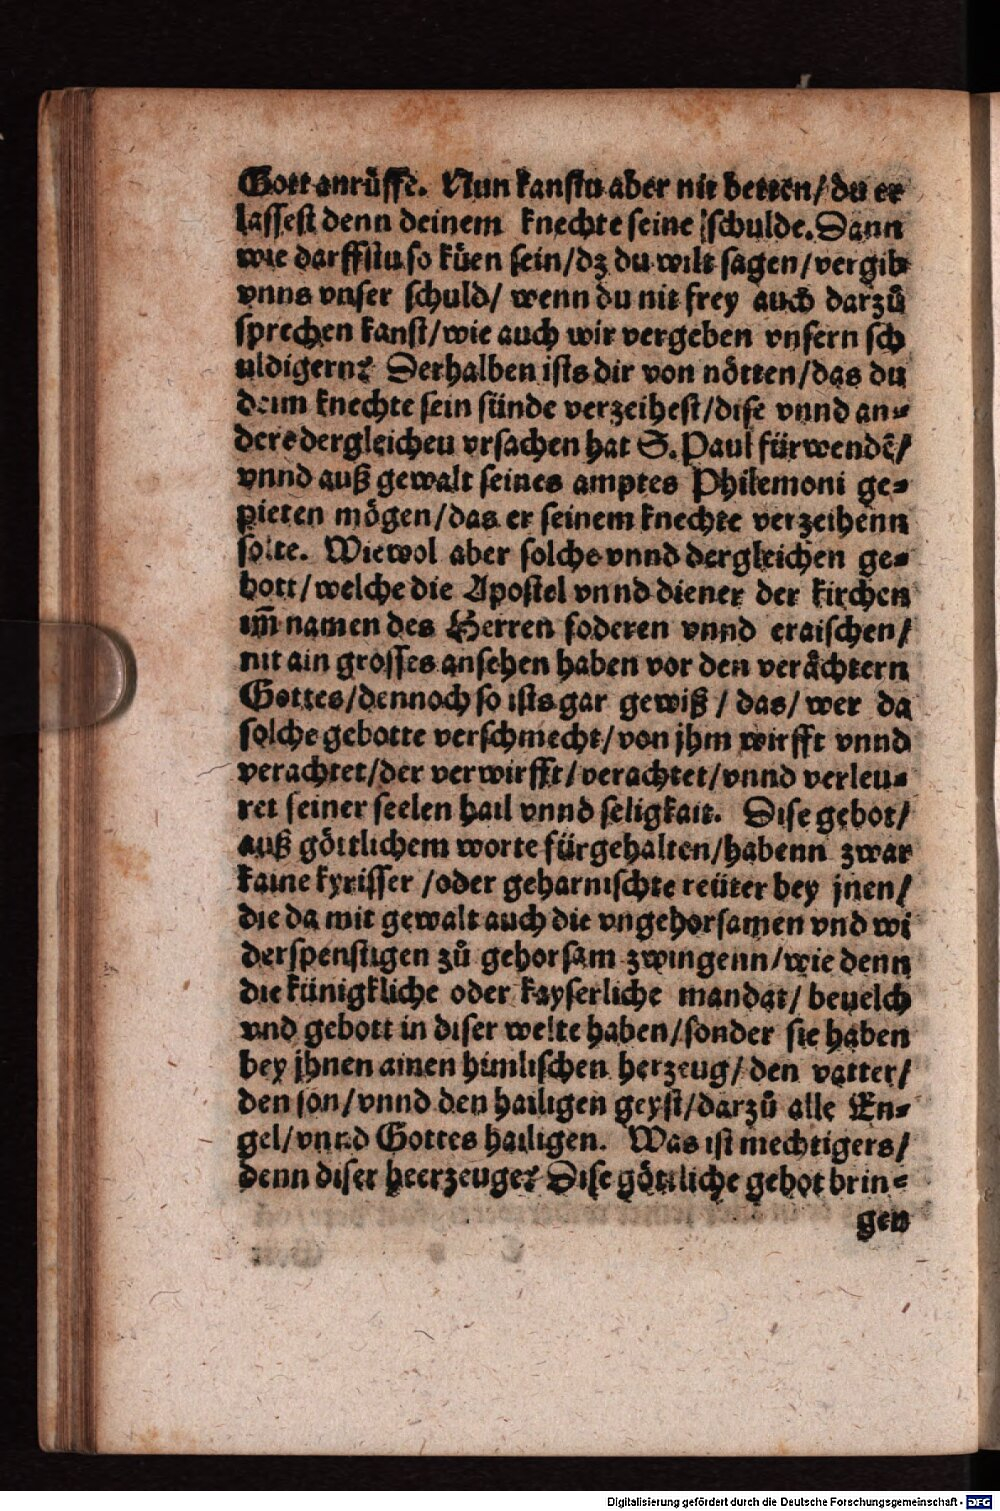 Gott anrüffe. Nun kanstu aber nit betten/ du er
lassest denn deinem knechte seine schulde. Dann
wie darffstu so küen sein/ dz du wilt sagen/ vergib
vnns vnser schuld/ wenn du nit frey auch darzů
sprechen kanst/ wie auch wir vergeben vnsern sch
uldigern? Derhalben ists dir von nötten/ das du
deim knechte sein sünde verzeihest/ dise vnnd an⸗
dere dergleicheu vrsachen hat S. Paul fürwendē/
vnnd auß gewalt seines amptes Philemoni ge⸗
pieten mögen/ das er seinem knechte verzeihenn
solte. Wiewol aber solche vnnd dergleichen ge⸗
bott/ welche die Apostel vnnd diener der kirchen
im̄ namen des Herren foderen vnnd eraischen/
nit ain grosses ansehen haben vor den verächtern
Gottes/ dennoch so ists gar gewiß/ das/ wer da
solche gebotte verschmecht/ von jhm wirfft vnnd
verachtet/ der verwirfft/ verachtet/ vnnd verleu⸗
ret seiner seelen hail vnnd seligkait. Dise gebot/
auß göttlichem worte fürgehalten/ habenn zwar
kaine kyrisser/ oder geharnischte reüter bey jnen/
die da mit gewalt auch die vngehorsamen vnd wi
derspenstigen zů gehorsam zwingenn/ wie denn
die künigkliche oder kayserliche mandat/ beuelch
vnd gebott in diser welte haben/ sonder sie haben
bey jhnen ainen himlischen herzeug/ den vatter/
den son/ vnnd den hailigen geyst/ darzů alle En⸗
gel/ vnnd Gottes hailigen. Was ist mechtigers/
denn diser heerzeuge? Dise göttliche gebot brin⸗
gen
Digitalisierung gefördert durch die Deutsche Forschungsgemeinschaft - DFG